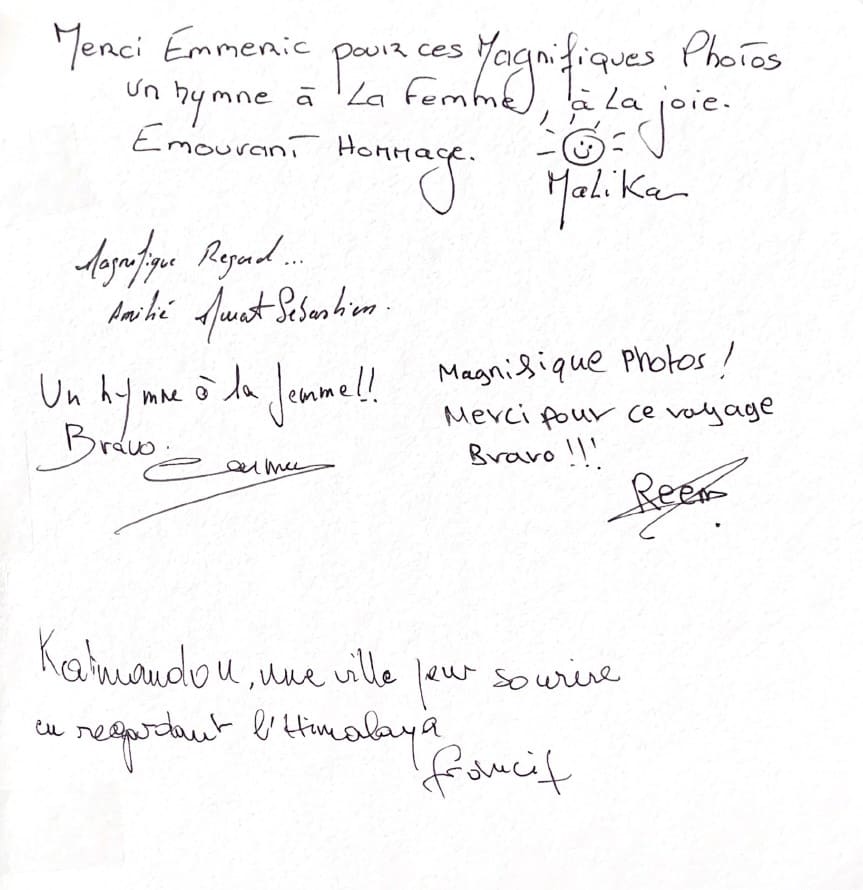 Merci Emmeric pour ces Magnifiques Photos
Un hymne à La Femme, à La joie.
Emouvant Hommage.
MaLiKa
Magnifique Regard...
Amitié Sébastien.
Un hymne à la femme!!
Bravo.
Magnifique Photos!
Merci pour ce voyage
Bravo!!!
Reem
Katmandou, une ville pour sourire
en regardant l'Himalaya
francis